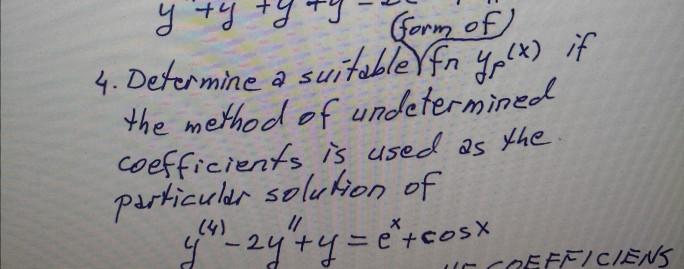 (form of)
4. Determine a suitable fn yp(x) if
the method of undetermined
coefficients is used as the
particular solution of
y⁽⁴⁾-2y''+y=eˣ+cosx
COEFFICIENS